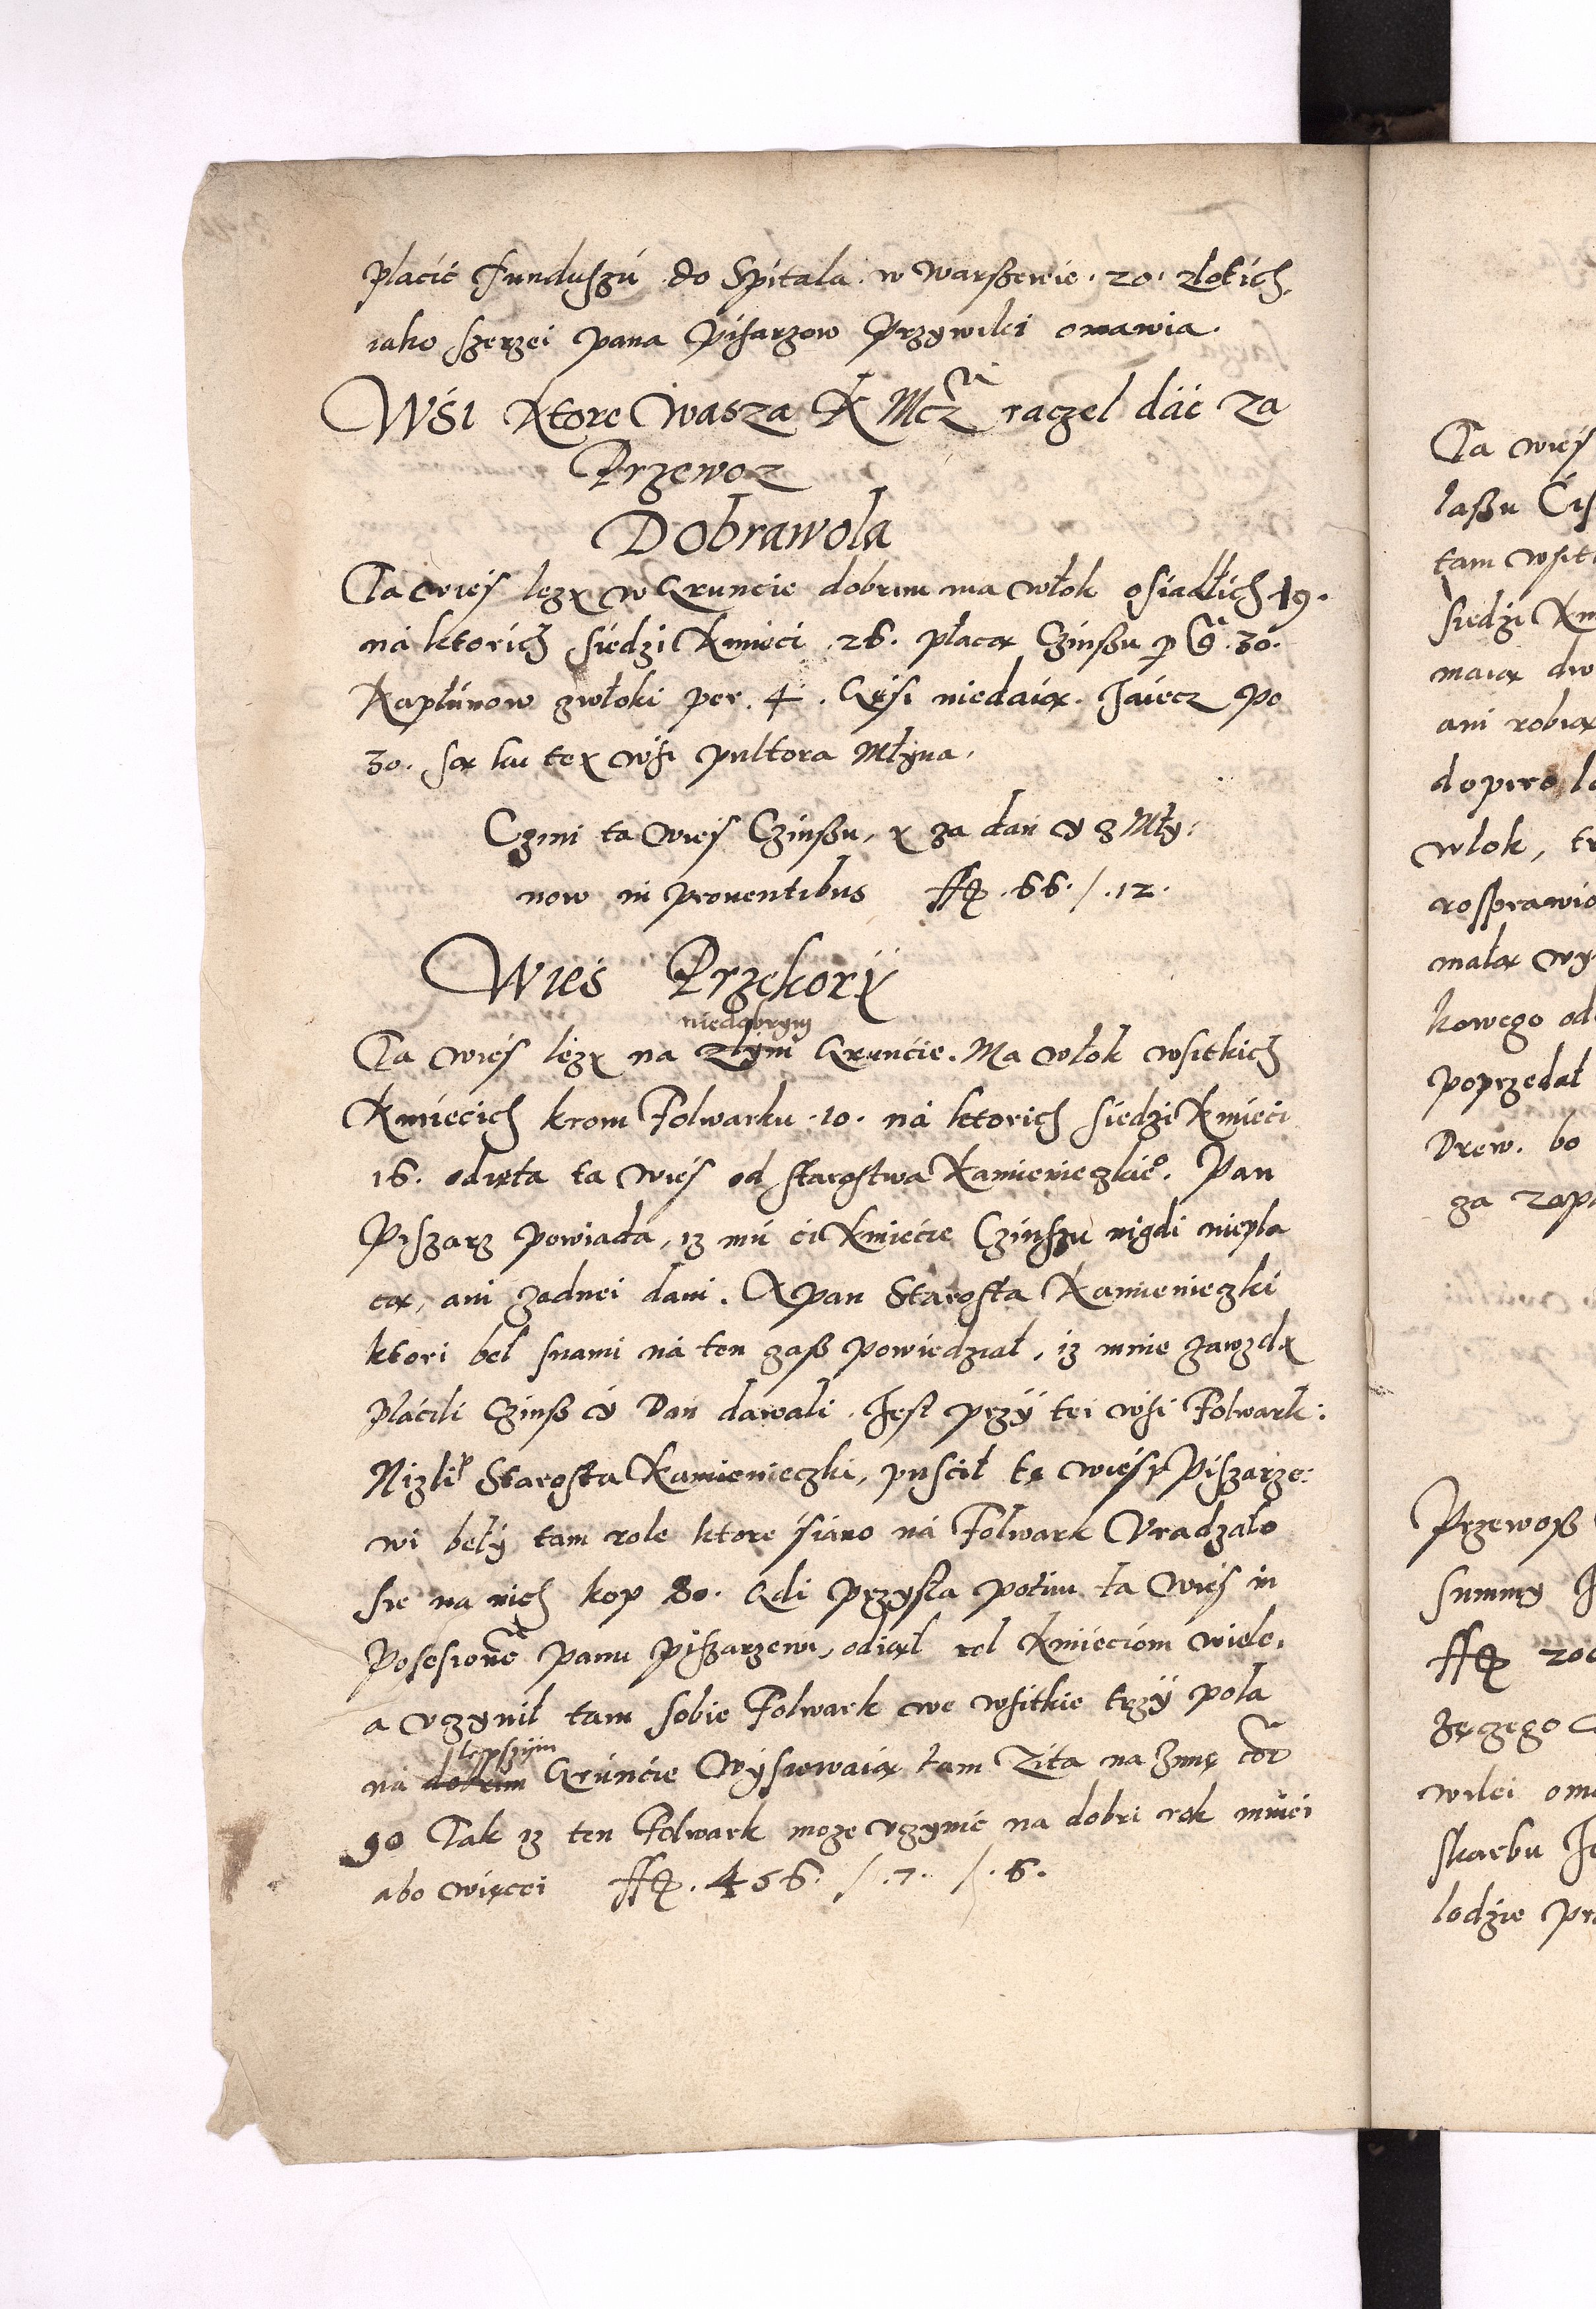 płacić funduszú do Spitala w warßewie. 20. złotich.
iako szerzei pana pisarzow Przywilei omawia.
Wsi Ktore Wasza K Mcz raczel dać za
Przewoz
Dobrawola
Ta wies lezy w Gruncie dobrim ma włok osiadłich 19.
ná ktorich siedzi Kmieci .26. płacą Czinßu p gr. 30.
Kapłúnow zwłoki per. 4. Gęsi niedaią. Jáiecz po
30. Są ku tey wsi pultora Młyna.
Czini ta wies Czinßu, y za dań y z Mły:
now in prouentibus ff .66. /. 12.
Wies Przekory
niedobrym
Ta wies lezy na złym Gruncie. Ma włok wsitkich
Kmiecich krom Folwarku .10. ná ktorich siedzi Kmieci
16. odięta ta wies od starostwa Kamienieczkieo. Pan
Piszarz powiada, iz mú ci Kmiecie Czinszu nigdi niepła
cą, ani zadnei dani. A pan Starosta Kamienieczki
ktori beł snami ná ten zaß powiedział, iz mnie zawzdy
płácili Czinß y Dań dawali. Jest przÿ tei wsi Folwark:
Nizli Starosta Kamienieczki, puscił tę wies Piszarze:
wi bełÿ tam role ktore siano ná Folwark Vradzało
się na nich kop 80. Gdi przysła potim ta wies in
Posesione panu piszarzewi, odiął rol Kmieciom wiele,
a vczynił tam sobie Folwark we wsitkie trzÿ pola
lepszÿm
ná dobrim Grúncie Wysiewaią tam Zita na Zimę cor
90 Tak iz ten Folwark moze vczynic na dobri rok mniei
abo więcei ff. 456. /. 7. /. 6.
Ta wies
laßu
tam
siedzi
maią
ani robią
dopiro
włok,
małą
kowego
poprzedał
Drew. bo
za
Przewoß
summy
ff 200
wilei
skarbu
lodzie